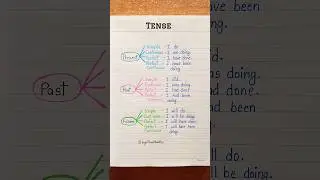 TENSE
Present
Simple - I do.
Continuous - I am doing.
Perfect - I have done.
Perfect Continuous - I have been doing.
Past
Simple - I did.
Continuous - I was doing.
Perfect - I had done.
Perfect - I had been doing.
Future
Simple - I will do.
Continuous - I will be doing.
Perfect - I will have done.
Perfect - I will have been doing.
Past
as doing.
ad done.
ad been
do.
be doing.